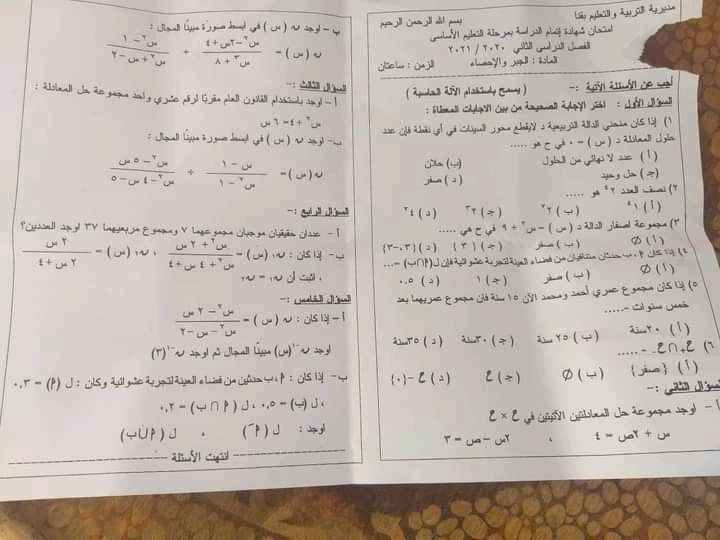 مديرية التربية والتعليم بقنا
بسم الله الرحمن الرحيم
امتحان شهادة إتمام الدراسة بمرحلة التعليم الأساسى
الفصل الدراسى الثاني ٢٠٢٠ / ٢٠٢١
المادة : الجبر والإحصاء الزمن : ساعتان
أجب عن الأسئلة الأتية :- ( يسمح باستخدام الآلة الحاسبة )
السؤال الأول : اختر الإجابة الصحيحة من بين الاجابات المعطاة :
١) إذا كان منحنى الدالة التربيعية د لايقطع محور السينات في أي نقطة فإن عدد
حلول المعادلة د ( س ) = ٠ في ح هو .....
( أ ) عدد لا نهائي من الحلول (ب) حلان
( جـ ) حل وحيد ( د ) صفر
٢) نصف العدد ٤٢ هو .....
٣) مجموعة اصفار الدالة د ( س ) = س٢ + ٩ في ح هي .....
( أ ) Ø ( ب ) صفر ( جـ ) {٣} ( د ) {٣،-٣}
٤) إذا كان ٢ ، ب حدثان متنافيان من فضاء العينة لتجربة عشوائية فإن ل(٢∩ب) =...
( أ ) Ø ( ب ) صفر ( جـ ) ١ ( د ) ٠.٥
٥) إذا كان مجموع عمري أحمد ومحمد الآن ١٥ سنة فان مجموع عمريهما بعد
خمس سنوات =.....
( أ ) ٢٠سنة ( ب ) ٢٥ سنة ( جـ ) ٣٠سنة ( د ) ٣٥سنة
٦) ح+ ∩ ح- = .....
( أ ) {صفر} ( ب ) Ø ( جـ ) ح ( د ) ح -{٠}
السؤال الثاني :-
أ - اوجد مجموعة حل المعادلتين الآتيتين في ح × ح
س + ٢ص = ٤ ، ٢س – ص = ٣
ب - اوجد ن ( س ) في ابسط صورة مبينًا المجال :
ن ( س ) = س٢–٢س+٤ / س٣ + ٨ ÷ س٢ – ١ / س٢ + س – ٢
السؤال الثالث :-
أ - اوجد باستخدام القانون العام مقربًا لرقم عشري واحد مجموعة حل المعادلة :
س٢ + ٤ = ٦ س
ب- اوجد ن ( س ) في ابسط صورة مبينًا المجال :
ن ( س ) = س – ١ / س٢ – ١ ÷ س٢ – ٥ س / س٢ – ٤ س – ٥
السؤال الرابع :-
أ - عددان حقيقيان موجبان مجموعهما ٧ ومجموع مربعيهما ٣٧ اوجد العددين؟
ب- إذا كان : ن١ (س) = ٢ س / ٢ س + ٤ ، ن٢ (س) = س٢ + ٢ س / س٢ + ٤ س + ٤
، اثبت أن ن١ = ن٢
السؤال الخامس :-
أ - إذا كان : ن ( س ) = س٢ – ٢ س / س٢ – س – ٢
اوجد ن-١(س) مبينًا المجال ثم اوجد ن-١(٣)
ب- إذا كان : ٢، ب حدثين من فضاء العينة لتجربة عشوائية وكان : ل (٢) = ٠,٣
، ل (ب) = ٠,٥ ، ل ( ٢ ∩ ب ) = ٠,٢
اوجد : ل ( ٢َ ) ، ل ( ٢∪ب )
انتهت الأسئلة